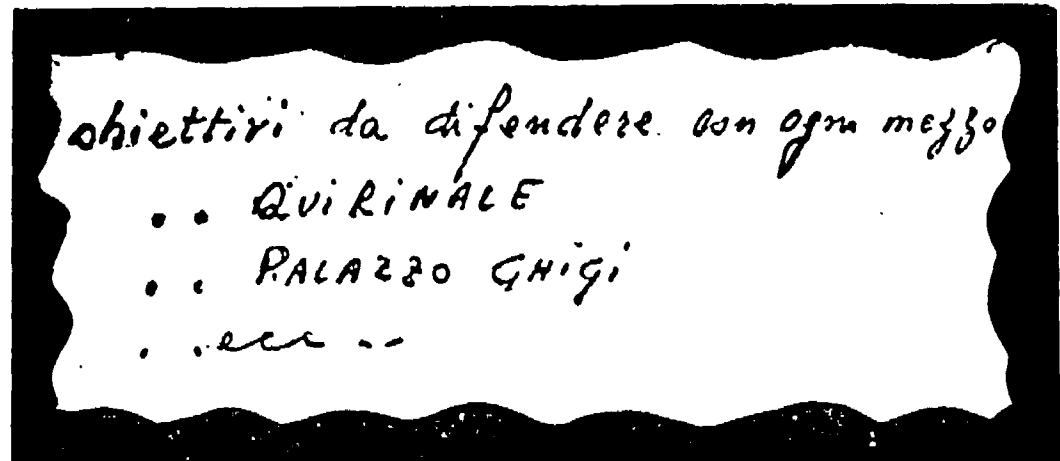 obiettivi da difendere con ogni mezzo
.. QUIRINALE
.. PALAZZO GHIGI
..ecc..